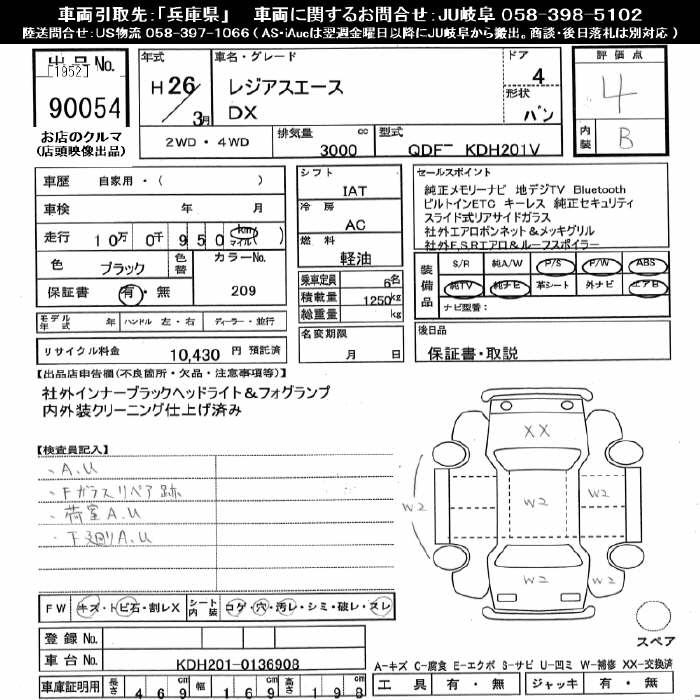 車両引取先:「兵庫県」 車両に関するお問合せ:JU岐阜 058-398-5102
陸送問合せ:US物流 058-397-1066 ( AS・iAucは翌週金曜日以降にJU岐阜から搬出。商談・後日落札は別対応 )
出品No.
[1952]
90054
お店のクルマ
(店頭映像出品)
年式
H 26/3月
車名・グレード
レジアスエース
DX
ドア
4
形状
バン
2WD・4WD
排気量 3000 cc
型式 QDF KDH201V
評価点
4
内装 B
車歴 自家用・( )
車検 年 月
走行 10万 0千 950 km マイル ( )
色 ブラック 色替 カラーNo. 209
保証書 有・無
モデル年式 年 ハンドル 左・右 ディーラー・並行
リサイクル料金 10,430 円 預託済
シフト IAT
冷房 AC
燃料 軽油
乗車定員 6名
積載量 1250kg
総重量 kg
名変期限 月 日
セールスポイント
純正メモリーナビ 地デジTV Bluetooth
ビルトインETC キーレス 純正セキュリティ
スライド式リアサイドガラス
社外エアロボンネット&メッキグリル
社外F,S,Rエアロ&ルーフスポイラー
装備品 S/R 純A/W P/S P/W ABS
純TV 純ナビ 革シート 外ナビ エアB
ナビ型番:
後日品
保証書・取説
【出品店申告欄(不良箇所・欠品・注意事項等)】
社外インナーブラックヘッドライト&フォグランプ
内外装クリーニング仕上げ済み
【検査員記入】
・A.U
・Fガラスリペア跡
・荷室A.U
・下廻りA.U
XX
W2
W2
W2
W2
W2
W2
FW キズ・トビ石・割レX シート内装 コゲ・穴・汚レ・シミ・破レ・スレ
登録No.
車台No. KDH201-0136908
車庫証明用 長さ 469 幅 169 高さ 198
スペア
A-キズ C-腐食 E-エクボ S-サビ U-凹ミ W-補修 XX-交換済
工具 有・無 ジャッキ 有・無